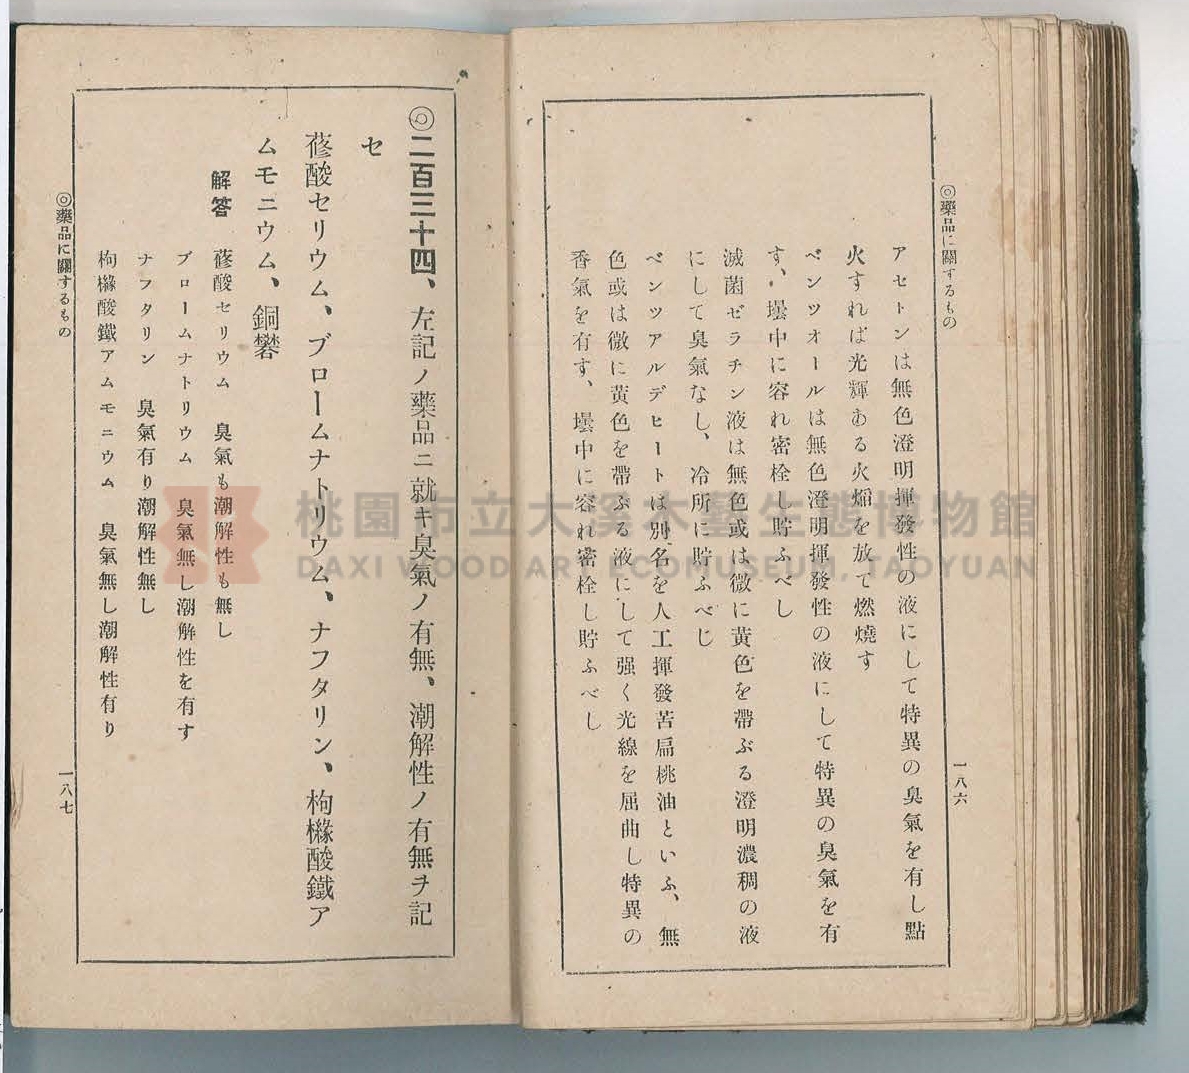 ◎藥品に關するもの
一八六
アセトンは無色澄明揮發性の液にして特異の臭氣を有し點
火すれば光輝ある火焔を放て燃燒す
ベンツオールは無色澄明揮發性の液にして特異の臭氣を有
す、壜中に容れ密栓し貯ふべし
滅菌ゼラチン液は無色或は微に黃色を帶ぶる澄明濃稠の液
にして臭氣なし、冷所に貯ふべじ
ベンツアルデヒートは別名を人工揮發苦扁桃油といふ、無
色或は微に黃色を帶ぶる液にして强く光線を屈曲し特異の
香氣を有す、壜中に容れ密栓し貯ふべし
◎二百三十四、左記ノ藥品ニ就キ臭氣ノ有無、潮解性ノ有無ヲ記
セ
蓚酸セリウム、ブロームナトリウム、ナフタリン、枸櫞酸鐵ア
ムモニウム、銅礬
解答 蓚酸セリウム 臭氣も潮解性も無し
ブロームナトリウム 臭氣無し潮解性を有す
ナフタリン 臭氣有り潮解性無し
枸櫞酸鐵アムモニウム 臭氣無し潮解性有り
◎藥品に關するもの
一八七
桃園市立大溪木藝生態博物館
DAXI WOOD ART ECOMUSEUM, TAOYUAN